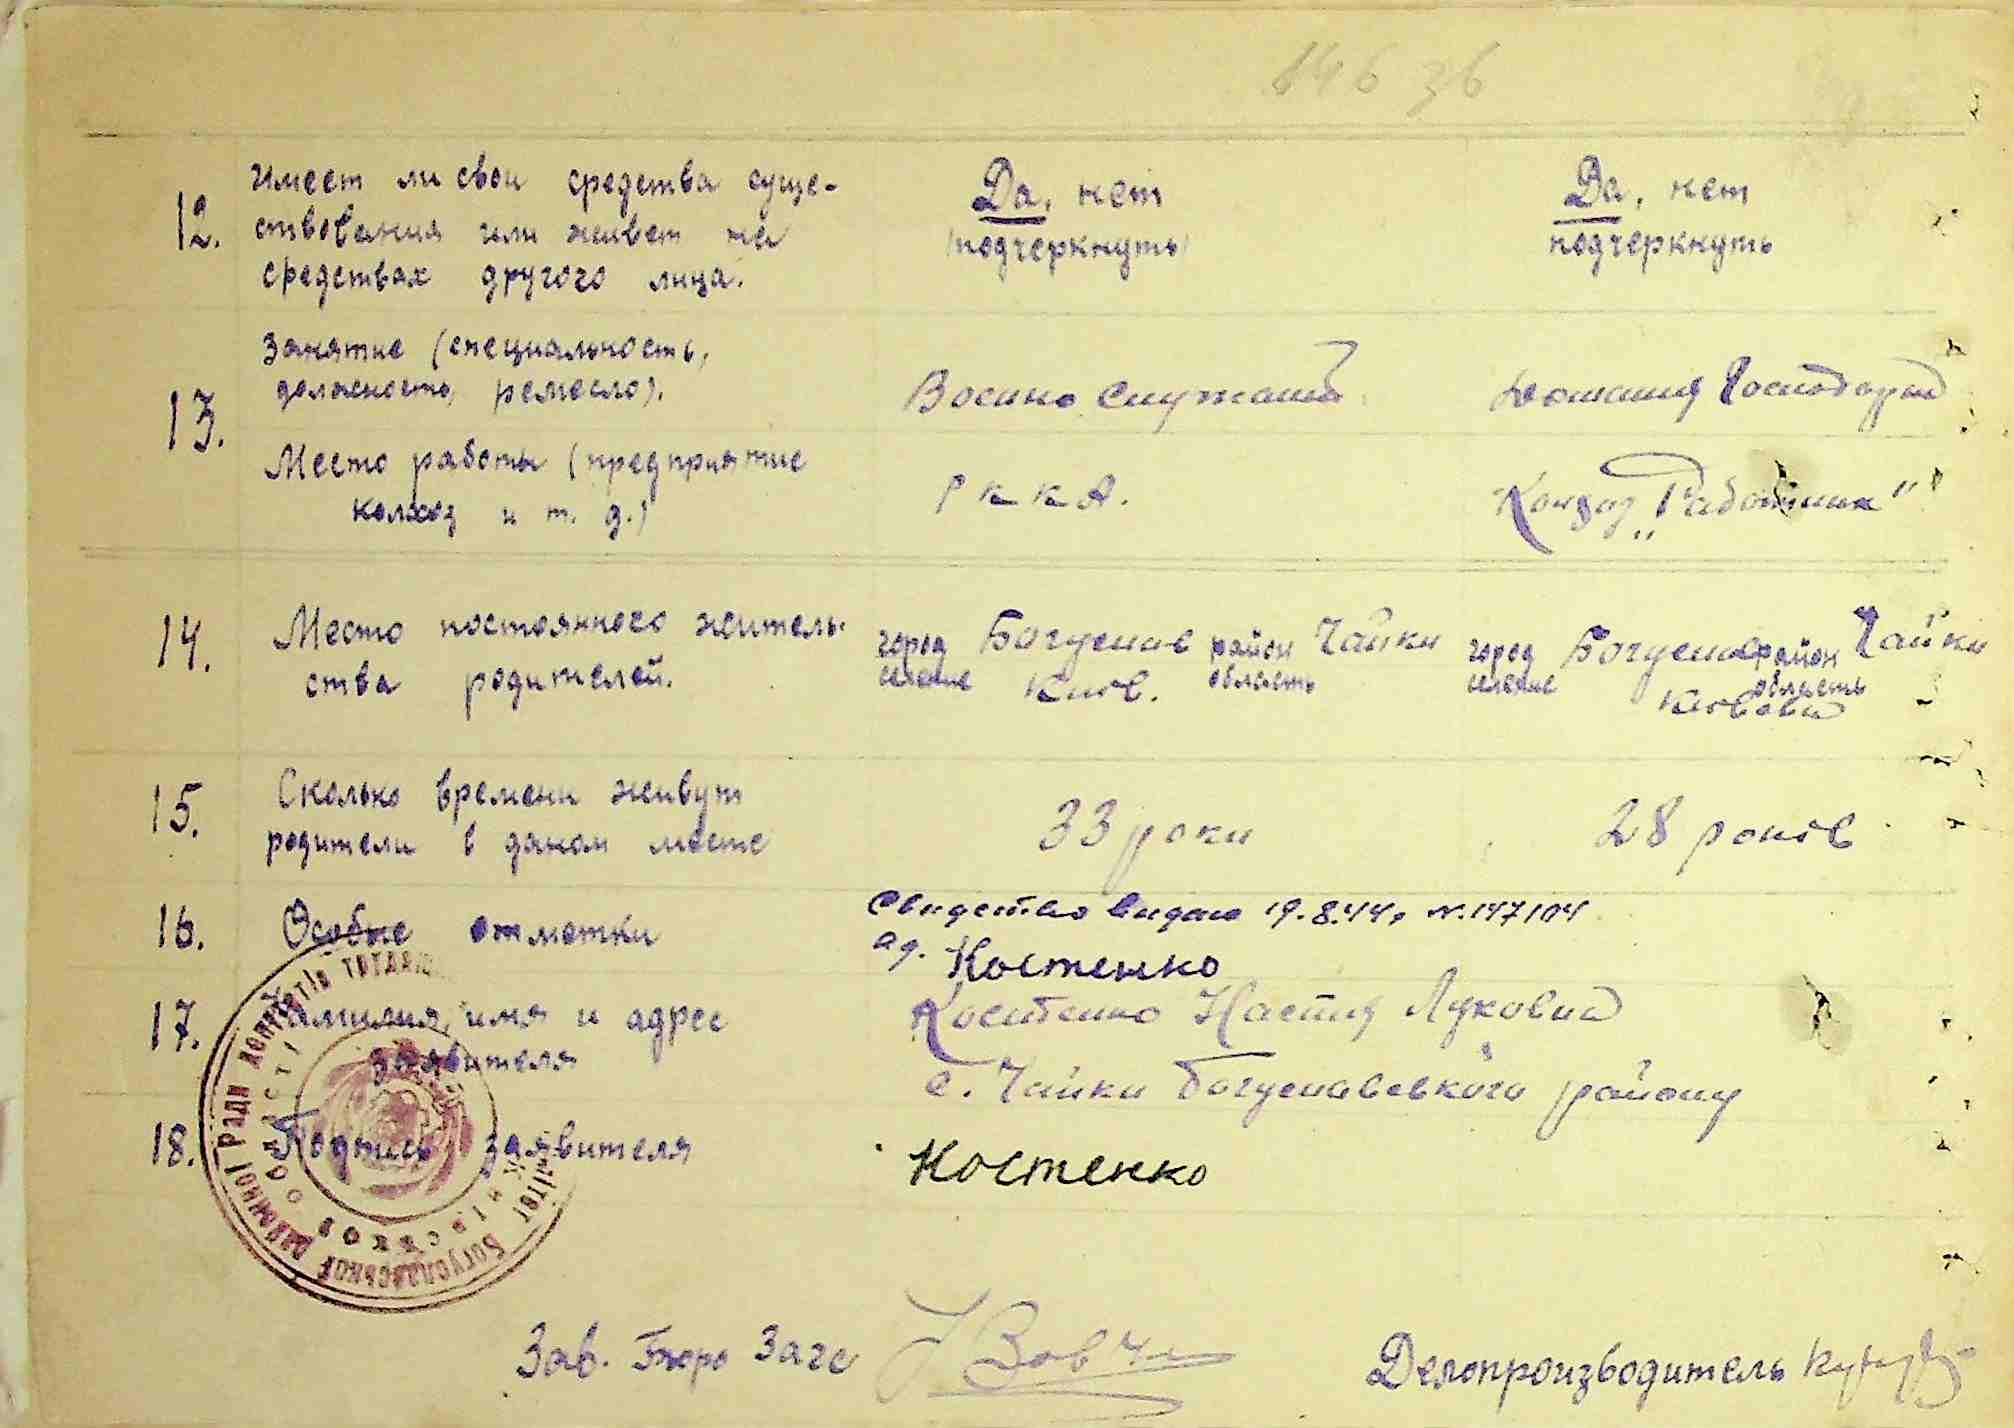 146 зв
12. Имеет ли свои средства суще-
ствования или живет на
средствах другого лица.
Да, нет
(подчеркнуть)
Да, нет
подчеркнуть
13. Занятие (специальность,
должность, ремесло).
Военно служащий
Домашня Господарка
Место работы (предприятие
колхоз и т. д.)
РККА.
Колхоз „Работник"
14. Место постоянного житель-
ства родителей.
город Богуслав район Чайки
селение Київ. область
город Богуслав район Чайки
селение область
Київська
15. Сколько времени живут
родители в даном месте
33 роки
28 років
16. Особые отметки
Свидетво видано 19.8.44р N.147104
ад. Костенко
17. Фамилия, имя и адрес
заявителя
Костенко Настя Луковна
с. Чайки Богуславського району
18. Подпись заявителя
Костенко
Богуславської районної Ради депутатів
Київської області
Зав. Бюро Загс
Делопроизводитель